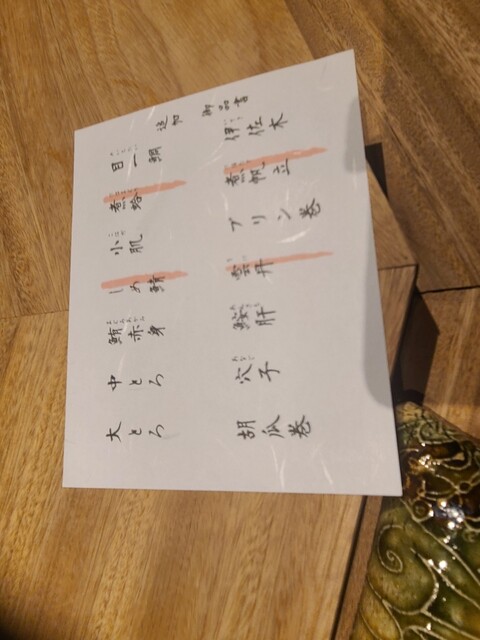 御品書
追加
目一鯛
煮蛤
小肌
しめ鯖
鮪赤身
中とろ
大とろ
伊佐木
煮帆立
プリン巻
雲丹
鮟肝
穴子
胡瓜巻